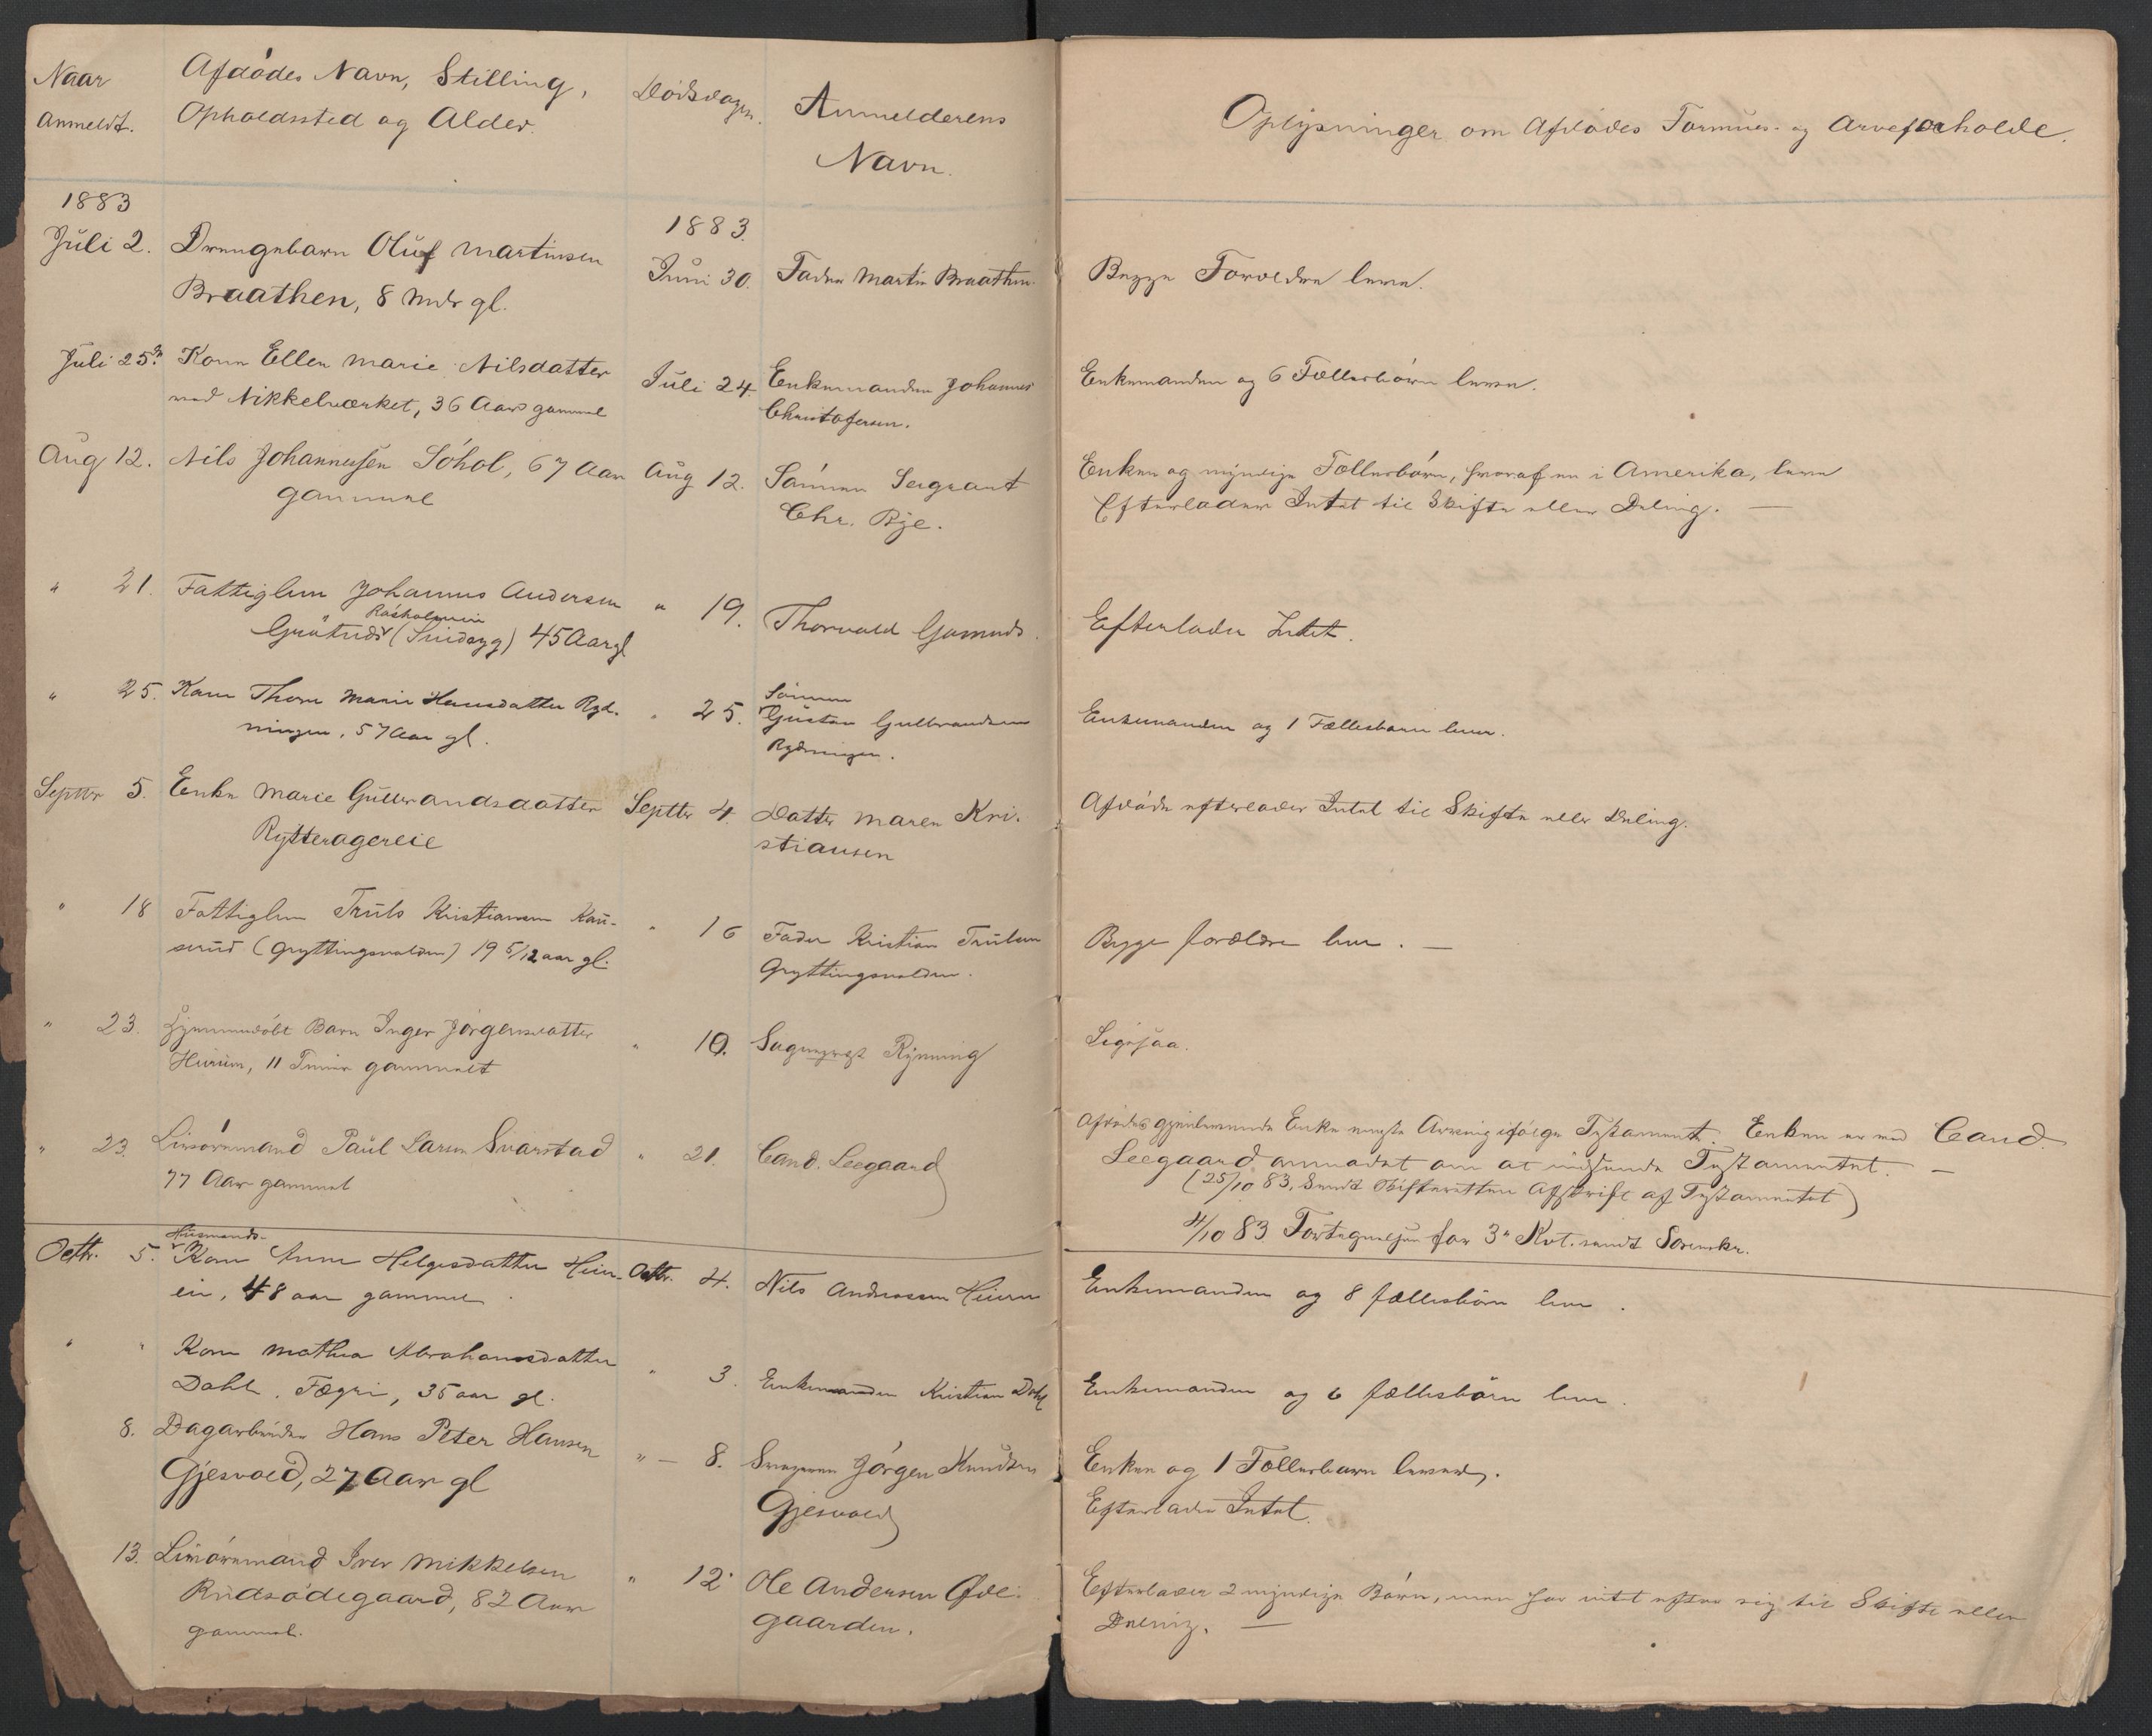 Naar
anmeldt.
Afdødes Navn, Stilling,
Opholdssted og Alder.
Dødsdagen.
Anmelderens
Navn.
Oplysninger om Afdødes Formues- og Arveforholde.
1883
Juli 2. Drengebarn Oluf Martinsen
Braathen, 8 Mdr gl.
1883.
Juni 30. Fader Martin Braathen.
Begge Forældre lever.
Juli 25. Kone Ellen Marie Nilsdatter
ved Nikkelværket, 36 Aar gammel
Juli 24. Enkemanden Johannes
Christofersen.
Enkemanden og 6 Fællesbørn lever.
Aug 12. Nils Johannessen Sóhol, 67 Aar
gammel
Aug 12. Sønnen Sergeant
Chr. Bye.
Enken og myndige Fællesbørn, hvoraf en i Amerika, lever
Efterlader Intet til Skifte eller Deling. —
" 21. Fattiglem Johannes Andersen
(Sindsyg) 45 Aar gl
" 19. Thorvald
Efterlader Intet.
" 25. Kone Thore Marie Hansdatter Ryd-
ningen, 57 Aar gl.
" 25. Sønnen
Gustav Gulbrandsen
Rydningen.
Enkemanden og 1 Fællesbarn lever.
Septbr 5. Enke Marie Gulbrandsdatter
Rytteragereie
Septbr 4. Datter Maren Kri-
stiansen
Afdøde efterlader Intet til Skifte eller Deling.
" 18 Fattiglem Truls Kristiansen Kau-
serud (Gryttingsvolden) 19 5/12 aar gl.
" 16 Fader Kristian Trulsen
Gryttingsvolden.
Begge forældre lever. —
" 23. Hjemmedøbt Barn Inger Jørgensdatter
Hurum, 11 Timer gammelt
" 10. Rynning
Ligesaa.
" 23. Livøremand Paul Larsen Svarstad
77 Aar gammel
" 21. Cand. Leegaard
Afdødes gjenlevende Enke eneste Arving ifølge Testament. Enken er ved Cand.
Leegaard anmodet om at indsende Testamentet. —
(25/10 83. Sendt Skifteretten Afskrift af Testamentet)
4/10 83 Fortegnelsen for 3e Kvt. sendt Sorenskr.
Octbr. 5. Husmands-
Kone Anne Helgesdatter Heier-
ein, 48 aar gammel
Octbr. 4. Nils Andersen Heieren
Enkemanden og 8 fællesbørn lever.
" " Kone Mathea Abrahamsdatter
Dahl. Fægri, 35 aar gl.
" 3. Enkemanden Kristian Dahl
Enkemanden og 6 fællesbørn lever.
8. Dagarbeider Hans Peter Hansen
Gjesvold, 27 Aar gl
" — 8. Svogeren Jørgen Knudsen
Gjesvold
Enken og 1 Fællesbarn lever.
Efterlader Intet.
13. Livøremand Iver Mikkelsen
Rudsødegaard, 82 Aar
gammel.
" 12 Ole Andersen Øde-
gaarden.
Efterlader 2 myndige Børn, men har intet efter sig til Skifte eller
Deling. —